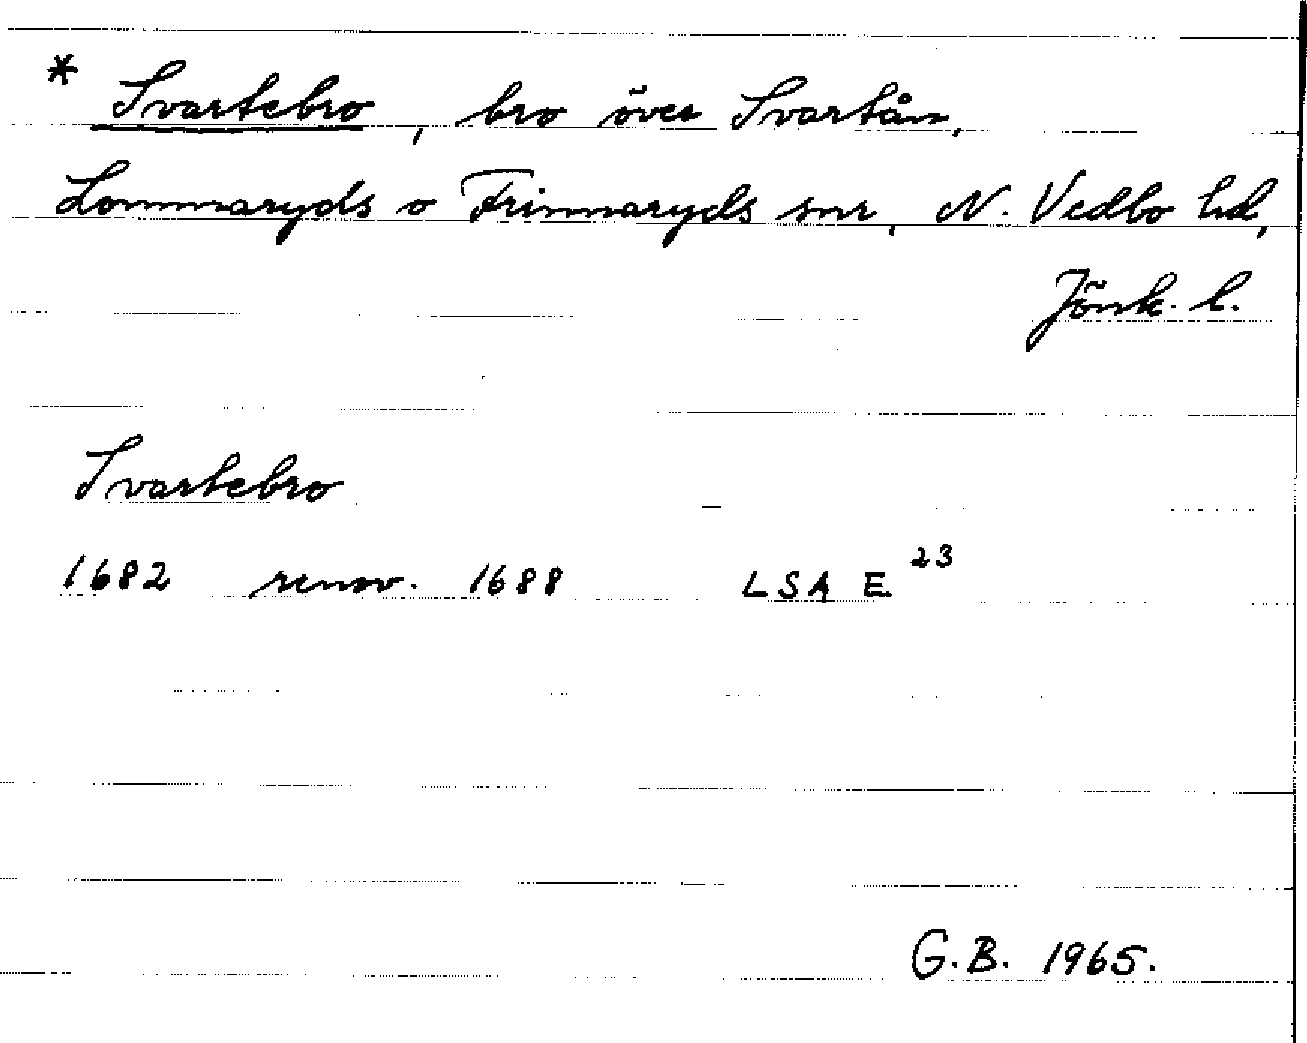 * Svartebro, bro över Svartån,
Lommaryds o Frinnaryds snr, N. Vedbo hd,
Jönk. l.
Svartebro
1682 renov. 1688 LSA E 23
G.B. 1965.